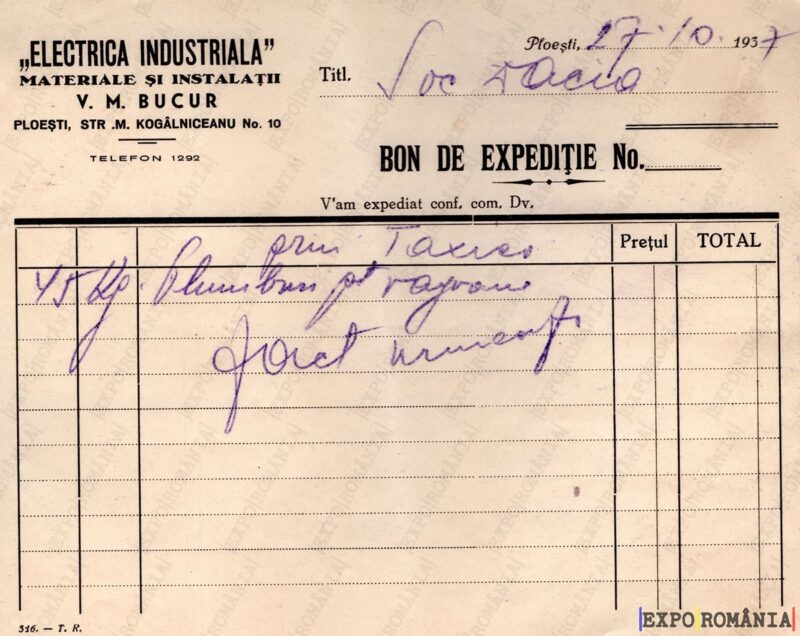 „ELECTRICA INDUSTRIALA”
MATERIALE ŞI INSTALAŢII
V. M. BUCUR
PLOEŞTI, STR .M. KOGÂLNICEANU No. 10
TELEFON 1292
Ploeşti, 27. 10. 1937
Titl. Soc Dacia
BON DE EXPEDIŢIE No.
V'am expediat conf. com. Dv.
Preţul TOTAL
prin
45 Kg. Plumburi pt vagoane
fact urmează
316. — T. R.
EXPO ROMÂNIA